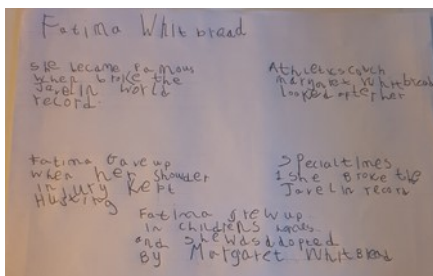 Fatima Whitbread
she became famous
when broke the
Javelin world
record.
Athletics coach
margaret whitbread
looked after her
Fatima Gave up
when her shoulder
injury kept
Hurting
Special times
1 she Broke the
Javelin record
Fatima grew up
in childrens homes
and she was adopted
By Margaret Whitbread